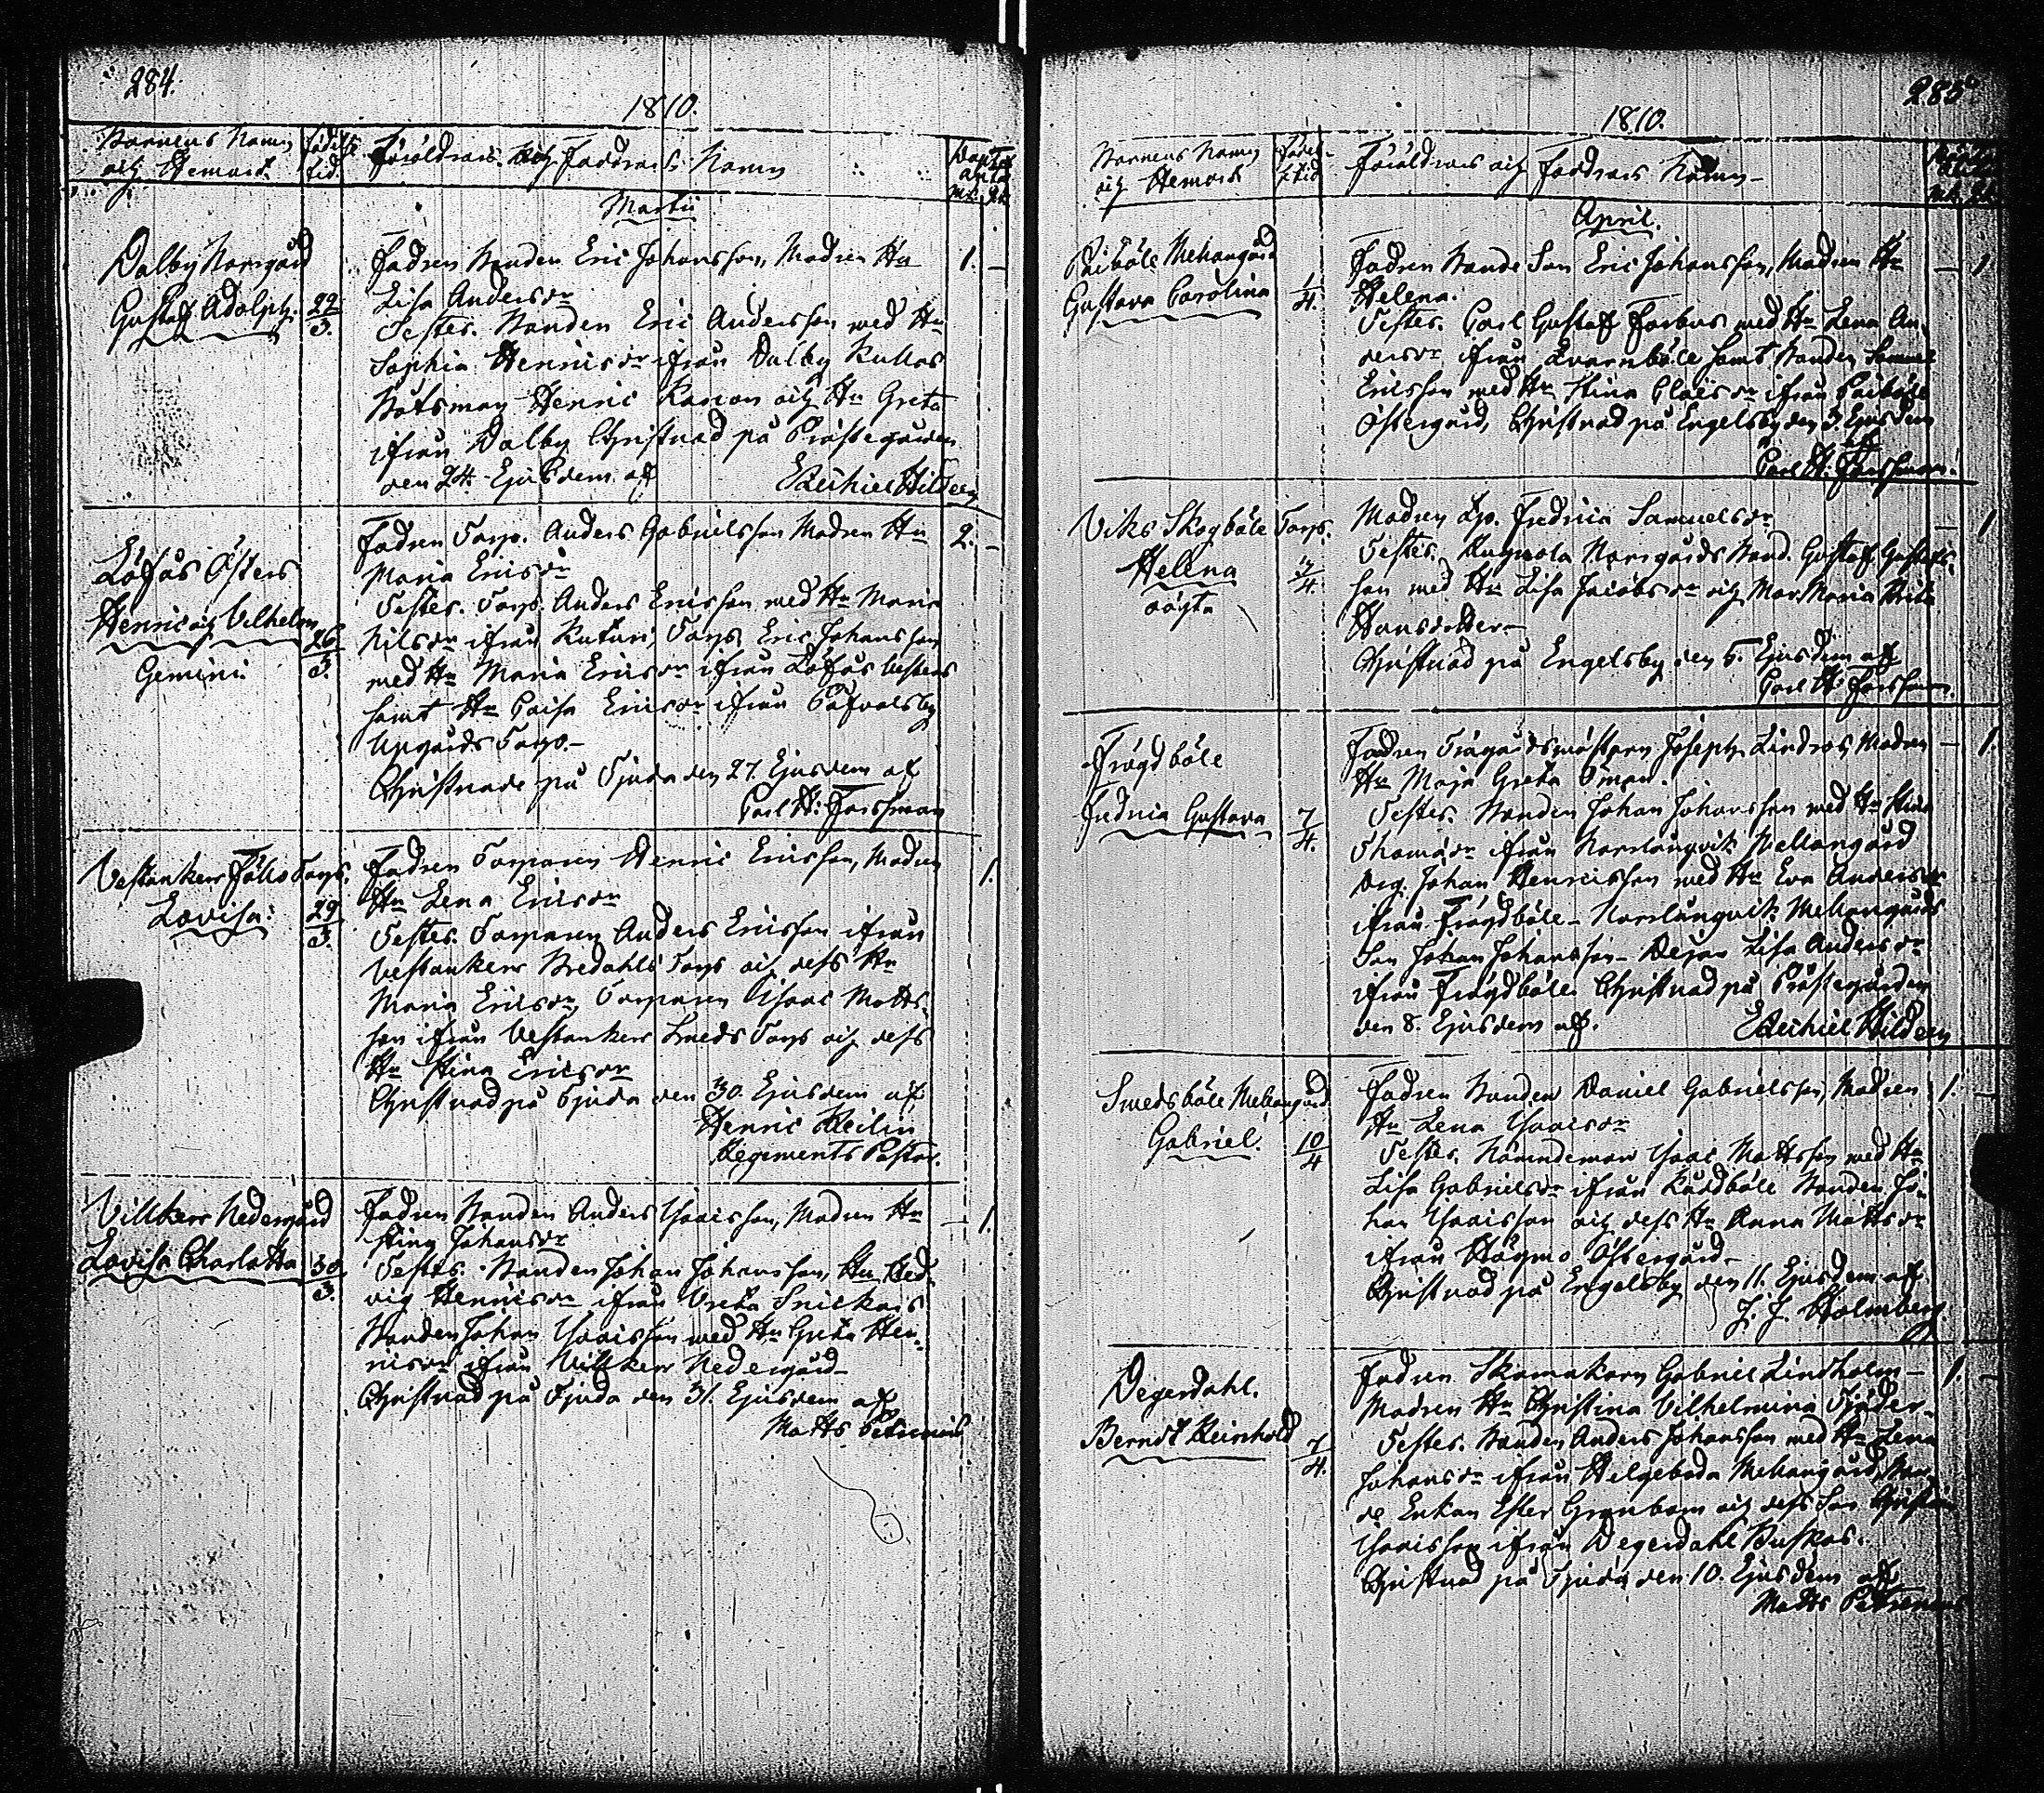 284.
1810.
Barnens Namn
och Hemvist.
Födelse
tid.
Föräldrars och Faddrars Namn
Döptes
antal
Mk. Qk.
Martii
Dalby Norrgård
Gustaf Adolph.
22
3.
Fadren Bonden Eric Johansson, Modren Hu
Lisa Andersdr
Testes. Bonden Eric Andersson med Hu
Sophia Henricsdr ifrån Dalby Kullas
Båtsman Henric Karion och Hu Greta
ifrån Dalby Christnad på Prästegården
den 24 Ejusdem af
Ezechiel Hildeen
1. –
Löfås Östers
Henric och Vilhelm
Gemini
26
3.
Fadren Torp. Anders Gabrielsson Modren Hu
Maria Ericsdr
Testes. Torp. Anders Ericsson med Hu Maria
Nilsdr ifrån Torp. Eric Johansson
med Hu Maria Ericsdr ifrån Löfås Vesters
samt Hu Caisa Ericsdr ifrån Påfvalsby
Uppgårds Torp.–
Christnade på Tjuda den 27. Ejusdem af
Carl H: Forssman
2. –
Vestankerr Fålls Torp.
Lovisa:
29
3.
Fadren Torparen Henric Ericsson, Modren
Hu Lena Ericsdr
Testes. Torparen Anders Ericsson ifrån
Vestankerr Bredahls Torp och dess Hu
Maria Ericsdr, Torparen Isaac Matts
son ifrån Vestankerr Smeds Torp och dess
Hu Stina Ericsdr
Christnad på Tjuda den 30. Ejusdem af
Henric Keilin
Regements Pastor.
1.
Villkerr Nedergård
Lovisa Charlotta
30
3.
Fadren Bonden Anders Isaacsson, Modren Hu
Stina Johansdr
Testes. Bonden Johan Johansson, Hu Hed
vig Henricsdr ifrån Vreta Snickars
Bonden Johan Isaacsson med Hu Greta Hen
ricsdr ifrån Villkerr Nedergård–
Christnad på Tjuda den 31. Ejusdem af
Matts Petrenius
– 1.
285.
1810.
Barnens Namn
och Hemvist
Födel
setid
Föräldrars och Faddrars Namn–
Mk. Qk.
April.
Paiböle Mellangård
Gustava Carolina
1
4.
Fadren Bonde Son Eric Johansson, Modren Hu
Helena.
Testes. Carl Gustaf Forbus med Hu Lena An
dersdr ifrån Qvarnböle samt Bonden Samuel
Ericsson med Hu Stina Claisdr ifrån Paiböle
Östergård, Christnad på Engelsby den 3. Ejusdem
af
Carl H: Forssman.
– 1
Viks Skogböle Torp.
Helena
oägta
4.
Modren Lp. Fredrica Samuelsdr
Testes. Rugnola Norrgårds Bond. Gustaf Gustafs
son med Hu Lisa Jacobsdr och Mor Maria Brita
Hansdotter–
Christnad på Engelsby den 5. Ejusdem af
Carl H: Forssman.
– 1
Frögdböle
Fredrica Gustava
7
4.
Fadren Trägårdsmästaren Joseph Lindros, Modren
Hu Maja Greta Öman.
Testes. Bonden Johan Johansson med Hu Stina
Thomasdr ifrån Norrlångvik Mellangård
Drg. Johan Henricsson med Hu Eva Andersdr
ifrån Frögdböle– Norrlångvik Mellangårds
Son Johan Johansson– Pejan Lisa Andersdr
ifrån Frögdböle. Christnad på Prästegården
den 8. Ejusdem af.
Ezechiel Hildeen
– 1.
Smedsböle Mellangård
Gabriel.
10
4
Fadren Bonden Daniel Gabrielsson, Modren
Hu Lena Isaacsdr
Testes. Nämndeman Isaac Mattsson med Hu
Lisa Gabrielsdr ifrån Kårdböle Bonden Jo
han Isaacsson och dess Hu Anna Mattsdr
ifrån Högmo Östergård–
Christnad på Engelsby den 11. Ejusdem af
J. J. Holmberg
1. –
Degerdahl.
Berndt Reinhold
7
4.
Fadren Skomakarn Gabriel Lindholm–
Modren Hu Christina Vilhelmina Tjäder–
Testes. Bonden Anders Johansson med Hu Lena
Johansdr ifrån Helgeboda Mellangård, Bon
de Enkan Ester Grönbom och dess Son Christian
Isaacsson ifrån Degerdahl Buskas.
Christnad på Tjuda den 10. Ejusdem af
Matts Petrenius
1. –